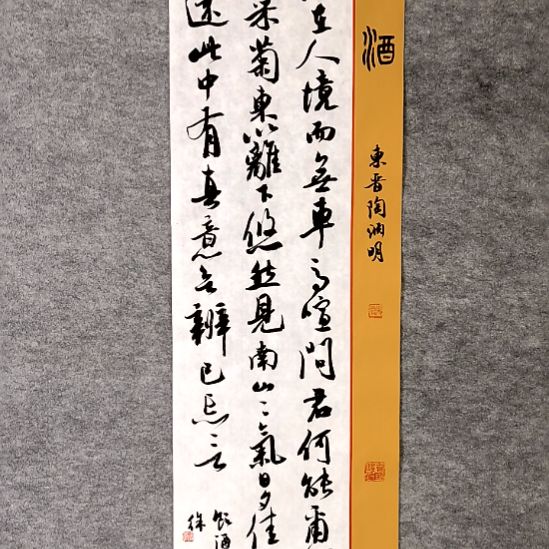 酒
東晋陶渊明
在人境而無車馬喧問君何能爾
采菊東籬下悠然見南山〻氣日夕佳
還此中有真意欲辨已忘言
飲酒
徐